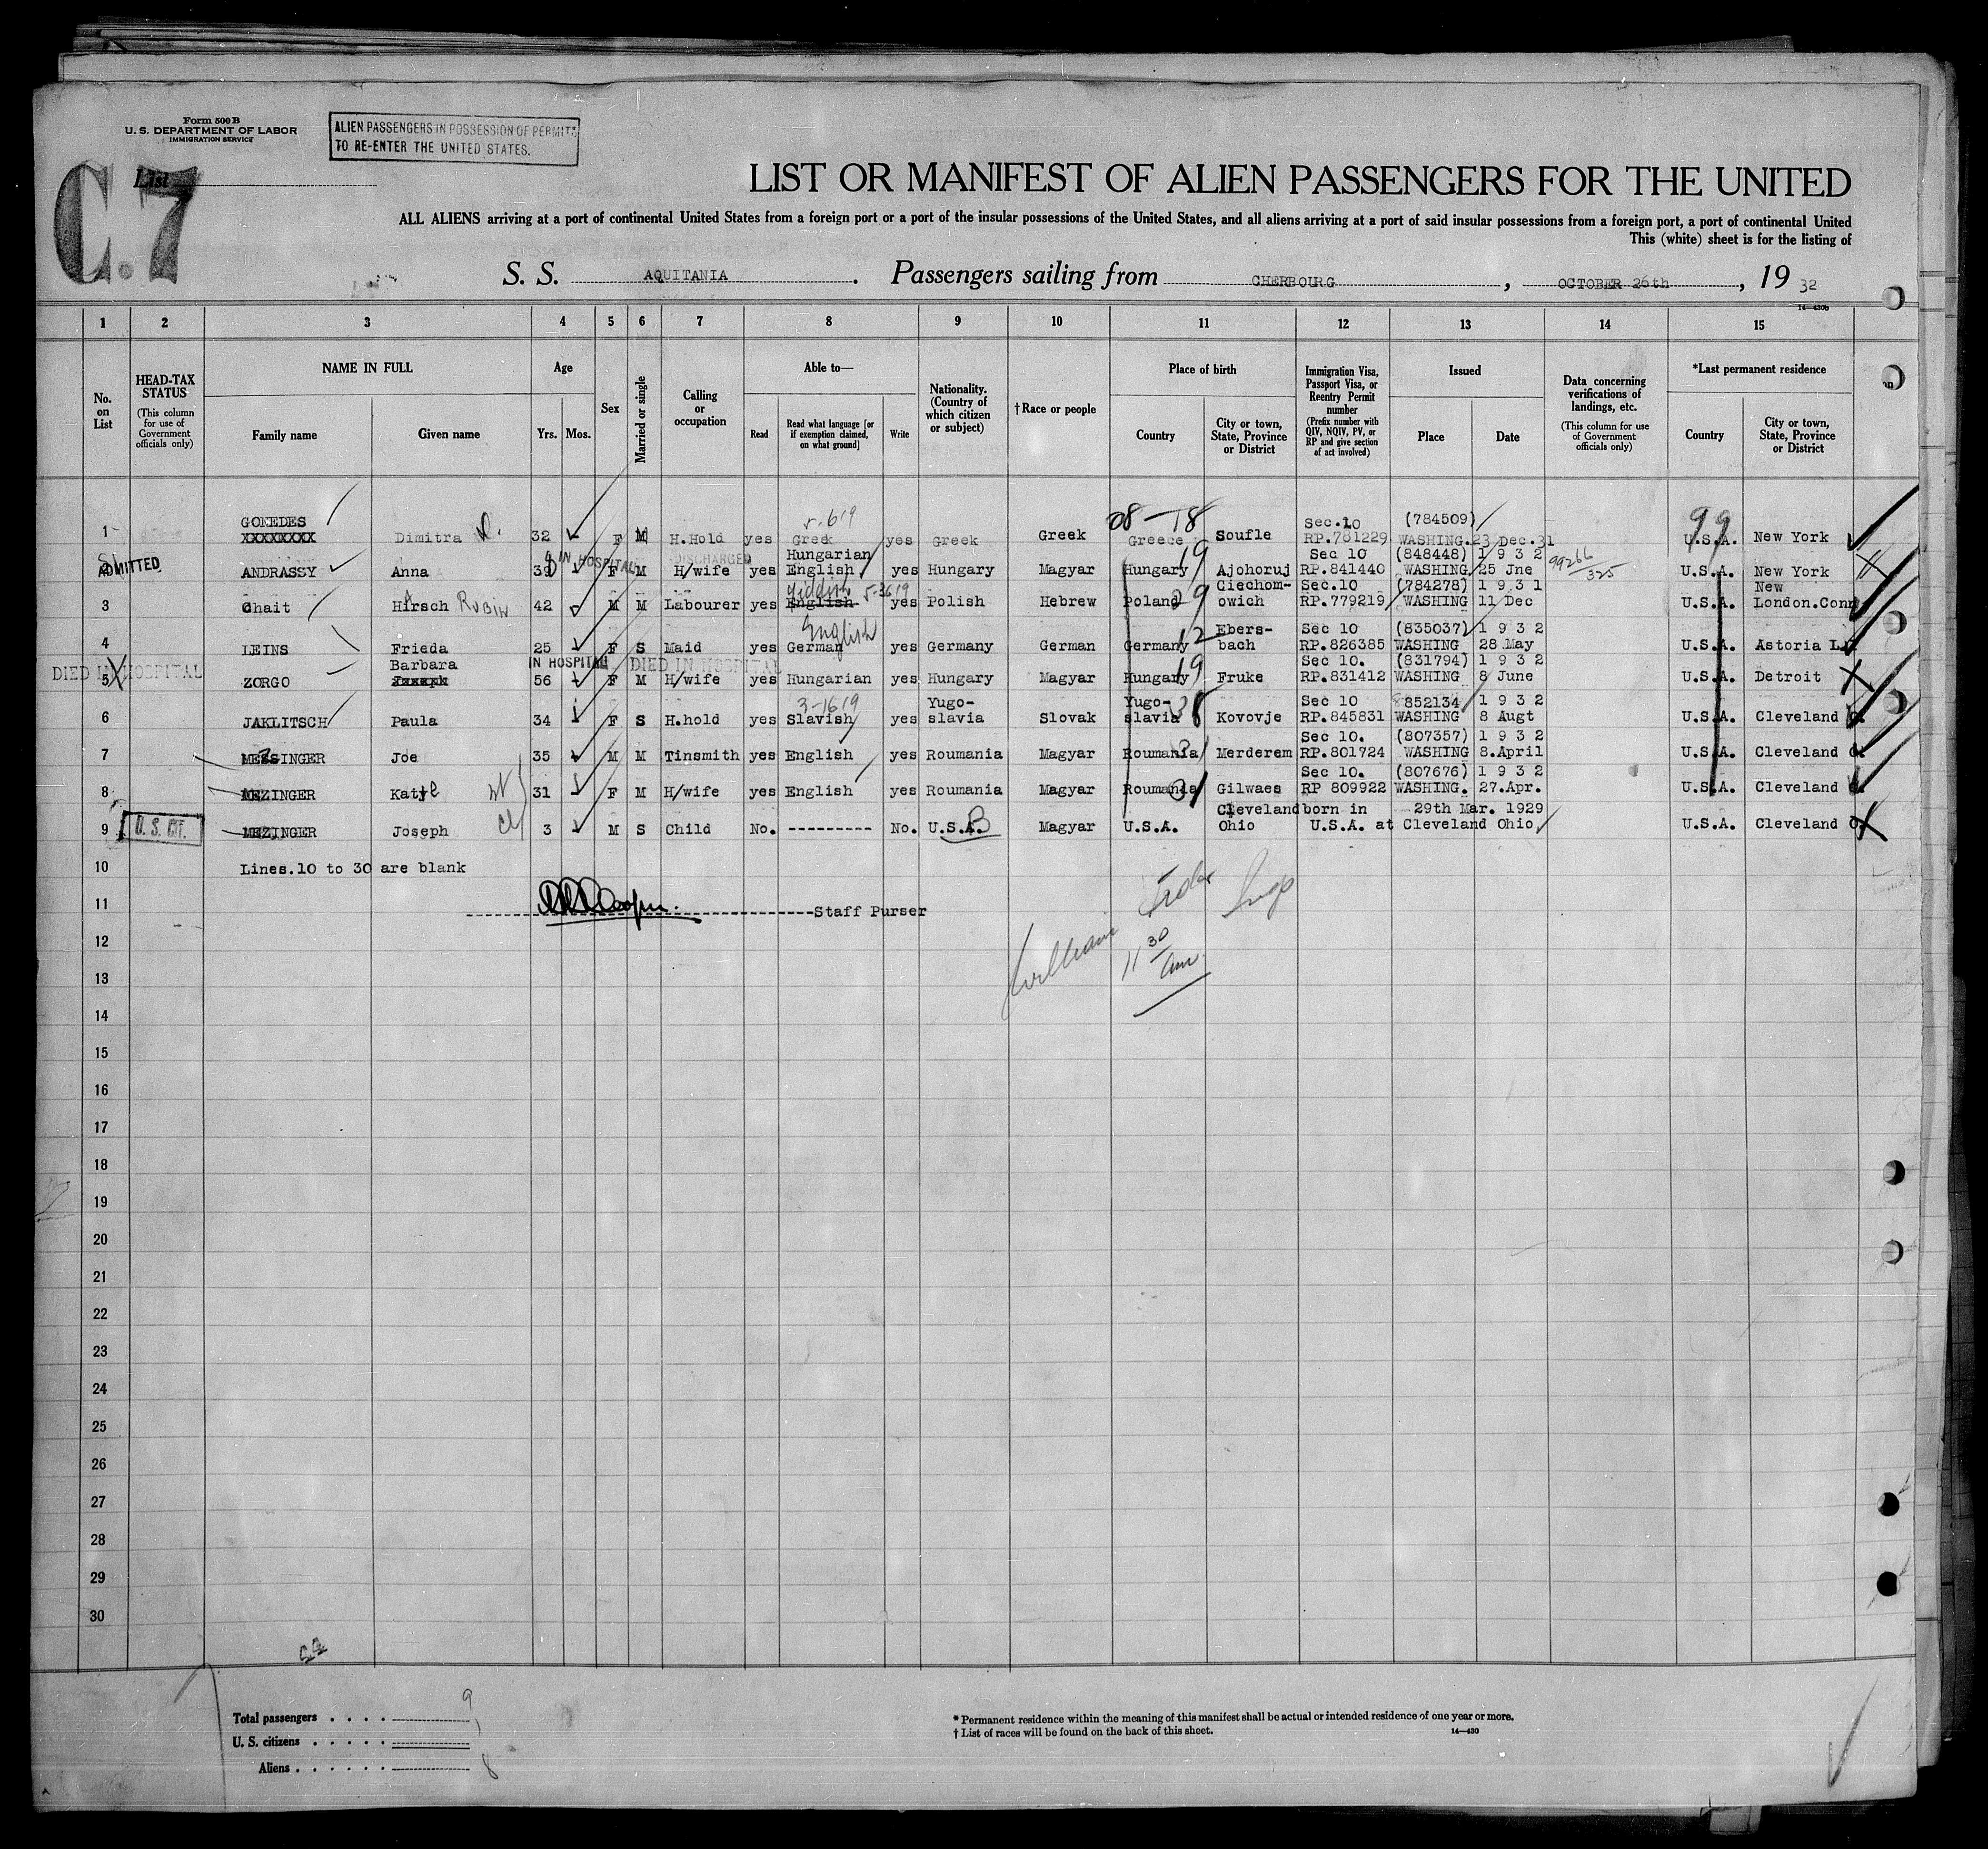 Form 500 B
U. S. DEPARTMENT OF LABOR
IMMIGRATION SERVICE
ALIEN PASSENGERS IN POSSESSION OF PERMITS
TO RE-ENTER THE UNITED STATES.
List
C.7
LIST OR MANIFEST OF ALIEN PASSENGERS FOR THE UNITED
ALL ALIENS arriving at a port of continental United States from a foreign port or a port of the insular possessions of the United States, and all aliens arriving at a port of said insular possessions from a foreign port, a port of continental United
This (white) sheet is for the listing of
S. S. AQUITANIA . Passengers sailing from CHERBOURG , OCTOBER 26th , 19 32
14—430b
1 2 3 4 5 6 7 8 9 10 11 12 13 14 15
No. on List
HEAD-TAX STATUS (This column for use of Government officials only)
NAME IN FULL Family name Given name
Age Yrs. Mos.
Sex
Married or single
Calling or occupation
Able to— Read Read what language [or if exemption claimed, on what ground] Write
Nationality. (Country of which citizen or subject)
†Race or people
Place of birth Country City or town, State, Province or District
Immigration Visa, Passport Visa, or Reentry Permit number (Prefix number with QIV, NQIV, PV, or RP and give section of act involved)
Issued Place Date
Data concerning verifications of landings, etc. (This column for use of Government officials only)
*Last permanent residence Country City or town, State, Province or District
GOMEDES 5-619 08-78 Sec.10 (784509) 99
1 XXXXXXXX Dimitra 32 F M H.Hold yes Greek yes Greek Greek Greece Soufle RP.781229 WASHING. 23 Dec.31 U.S.A. New York
ADMITTED IN HOSPITAL DISCHARGED Hungarian 19 Sec 10 (848448) 1 9 3 2 99266/325
2 ANDRASSY Anna 39 F M H/wife yes English yes Hungary Magyar Hungary Ajohoruj RP.841440 WASHING 25 Jne U.S.A. New York
Yiddish 5-3619 29 Ciechom- Sec.10 (784278) 1 9 3 1 New
3 Chait Hirsch Rubin 42 M M Labourer yes English yes Polish Hebrew Poland owich RP.779219 WASHING 11 Dec U.S.A. London.Conn
English 12 Ebers- Sec 10 (835037) 1 9 3 2
4 LEINS Frieda 25 F S Maid yes German yes Germany German Germany bach RP.826385 WASHING 28 May U.S.A. Astoria L.I
DIED IN HOSPITAL Barbara IN HOSPITAL DIED IN HOSPITAL 19 Sec 10. (831794) 1 9 3 2
5 ZORGO 56 F M H/wife yes Hungarian yes Hungary Magyar Hungary Fruke RP.831412 WASHING 8 June U.S.A. Detroit
3-1619 Yugo- Yugo- 38 Sec 10 852134 1 9 3 2
6 JAKLITSCH Paula 34 F S H.hold yes Slavish yes slavia Slovak slavia Kovovje RP.845831 WASHING 8 Augt U.S.A. Cleveland O.
31 Sec 10. (807357) 1 9 3 2
7 MEZSINGER Joe 35 M M Tinsmith yes English yes Roumania Magyar Roumania Merderem RP.801724 WASHING 8.April U.S.A. Cleveland O.
31 Sec 10. (807676) 1 9 3 2
8 MEZINGER Katye 31 F M H/wife yes English yes Roumania Magyar Roumania Gilwaes RP 809922 WASHING. 27.Apr. U.S.A. Cleveland O.
Cleveland born in 29th Mar. 1929
9 U.S. CIT. MEZINGER Joseph 3 M S Child No. --------- No. U.S.A. B Magyar U.S.A. Ohio U.S.A. at Cleveland Ohio. U.S.A. Cleveland O.
10 Lines.10 to 30 are blank
11 Staff Purser
12
William 11 30 am
13
14
15
16
17
18
19
20
21
22
23
24
25
26
27
28
29
30
Total passengers . . . . 9
U. S. citizens . . . . . 1
Aliens . . . . . . 8
* Permanent residence within the meaning of this manifest shall be actual or intended residence of one year or more.
† List of races will be found on the back of this sheet. 14—430